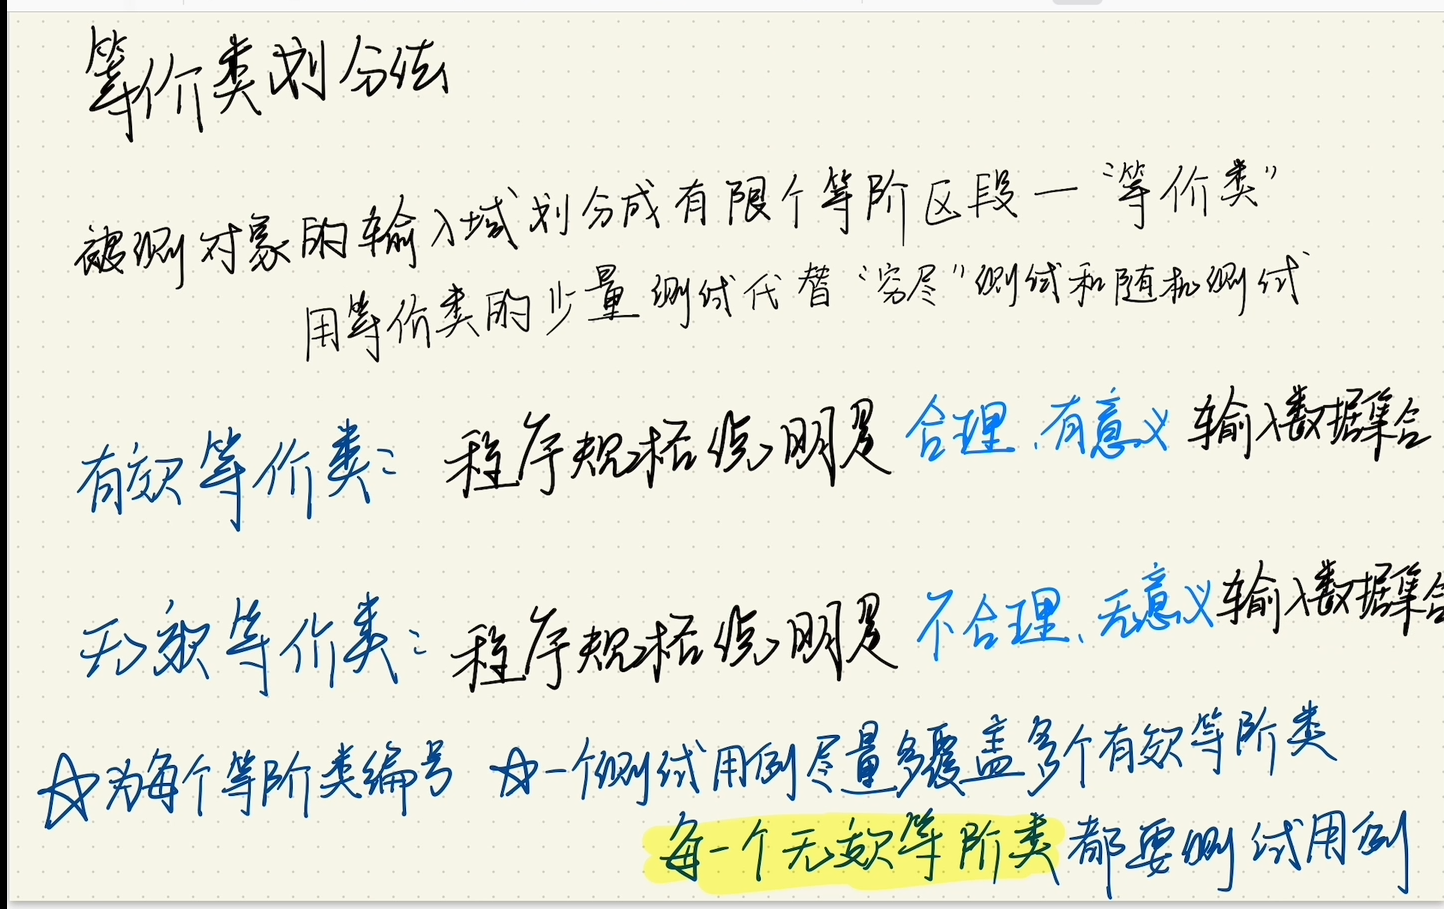 等价类划分法
被测对象的输入域划分成有限个等阶区段—“等价类”
用等价类的少量测试代替“穷尽”测试和随机测试
有效等价类: 程序规格说明是合理、有意义输入数据集合
无效等价类: 程序规格说明是不合理、无意义输入数据集合
☆为每个等阶类编号 ☆一个测试用例尽量多覆盖多个有效等阶类
每一个无效等阶类都要测试用例